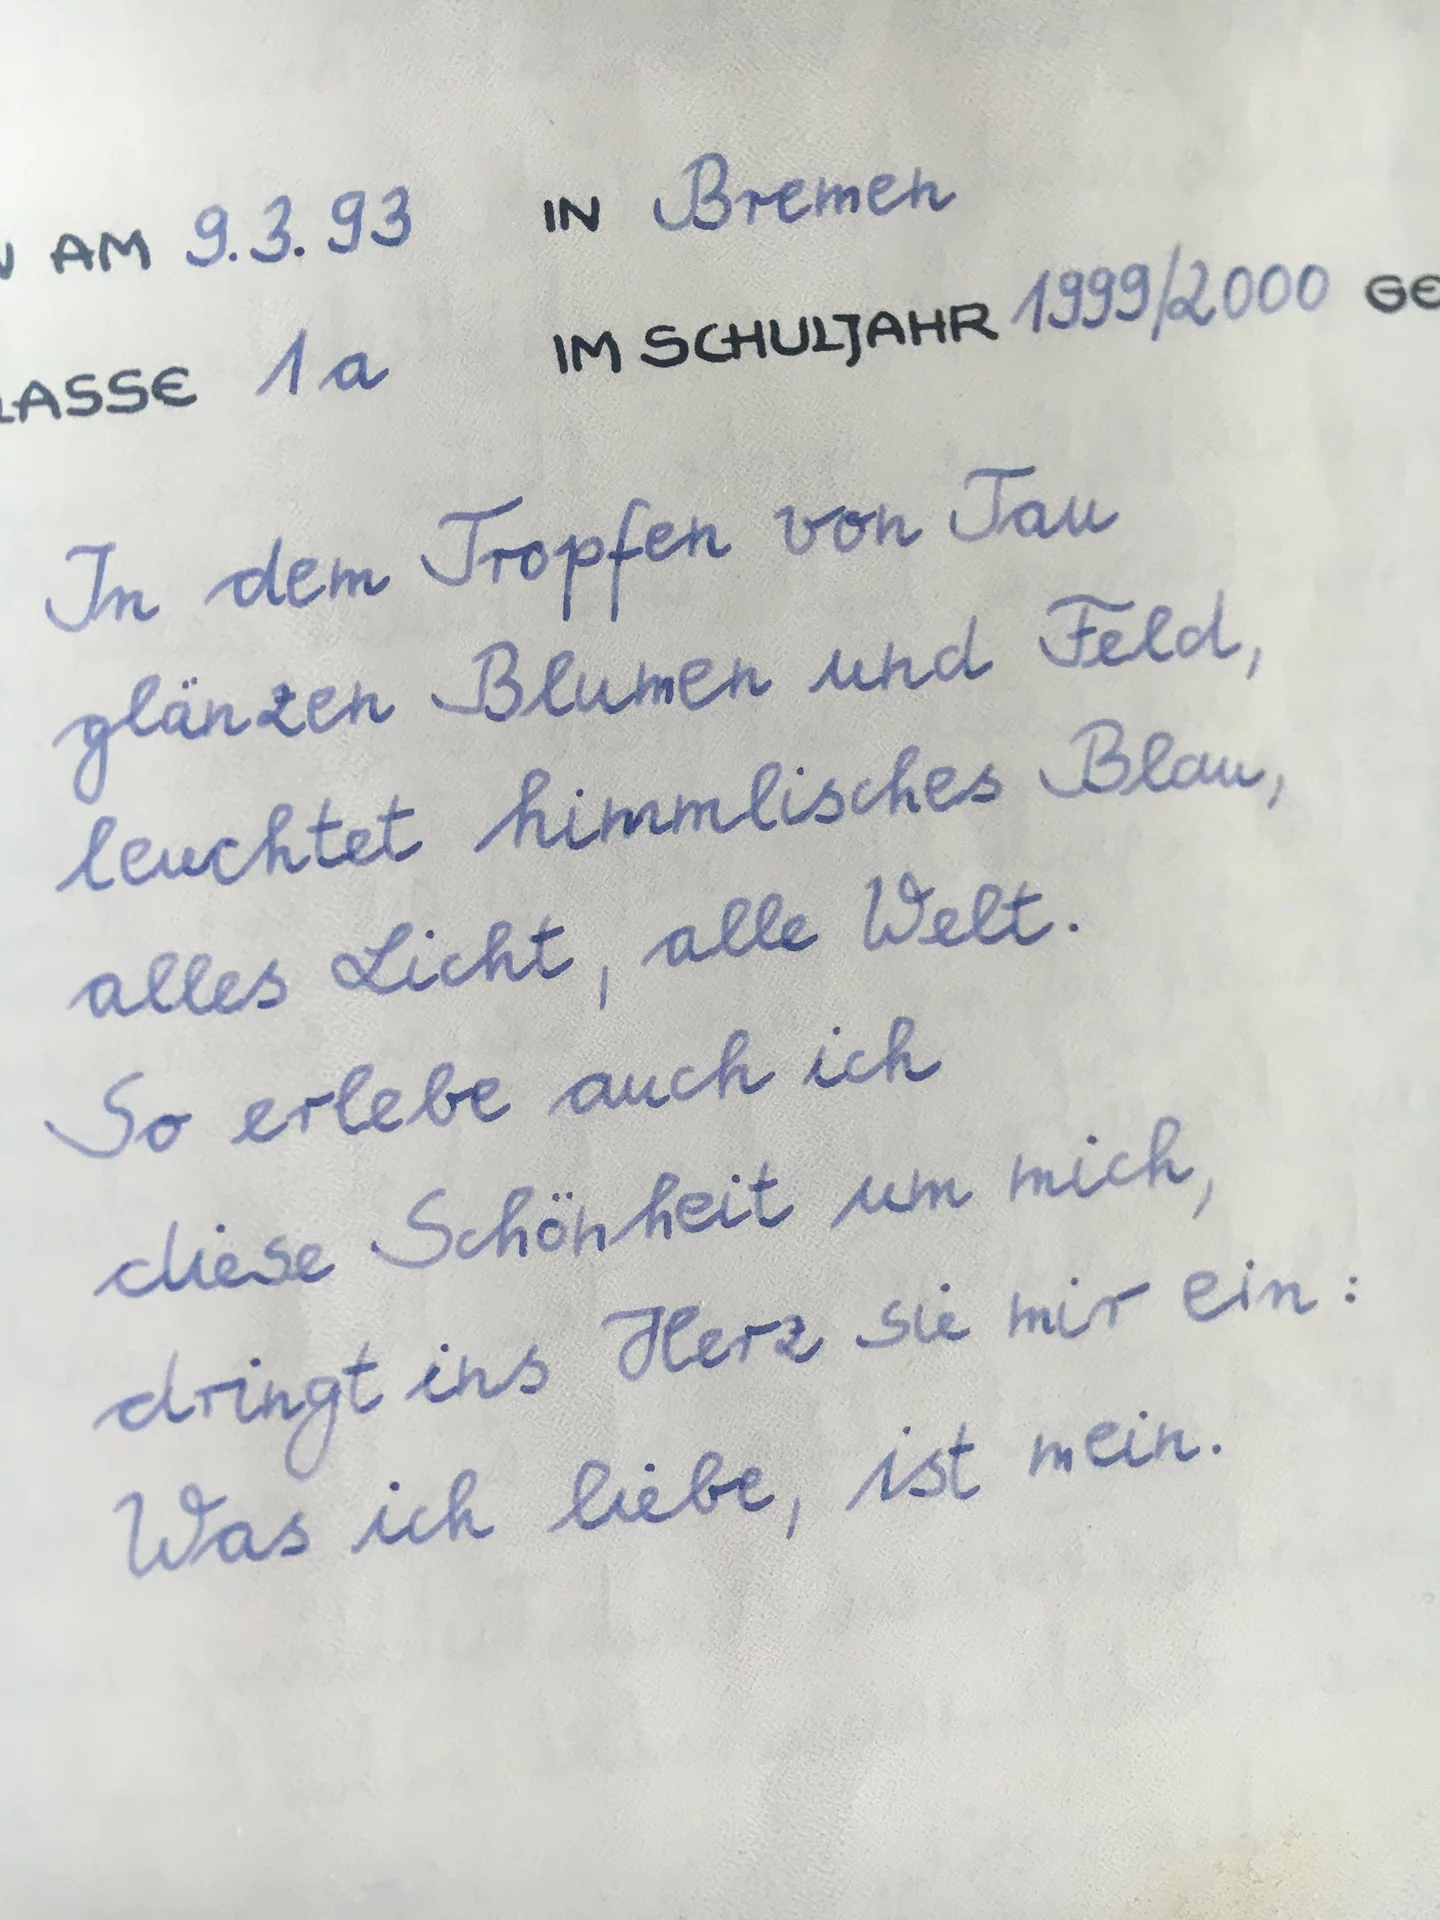 N AM 9.3.93 IN Bremen
LASSE 1a IM SCHULJAHR 1999/2000 GE
In dem Tropfen von Tau
glänzen Blumen und Feld,
leuchtet himmlisches Blau,
alles Licht, alle Welt.
So erlebe auch ich
diese Schönheit um mich,
dringt ins Herz sie mir ein:
Was ich liebe, ist mein.